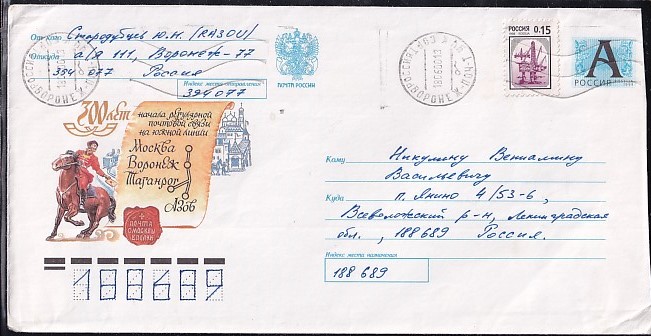 От кого Стародубцев Ю.Н. (RA3OU)
Откуда а/я 111, Воронеж-77
394077 Россия
Индекс места отправления
394077
ПОЧТА РОССИИ
РОССИЯ 0.15
А
РОССИЯ
300 лет
начала регулярной
почтовой связи
на южной линии
Москва
Воронеж
Таганрог
Азов
ПОЧТА
Кому Никулину Вениамину
Васильевичу
Куда п. Янино 4/53-6,
Всеволожский р-н, Ленинградская
обл., 188689 Россия.
Индекс места назначения
188689
188689